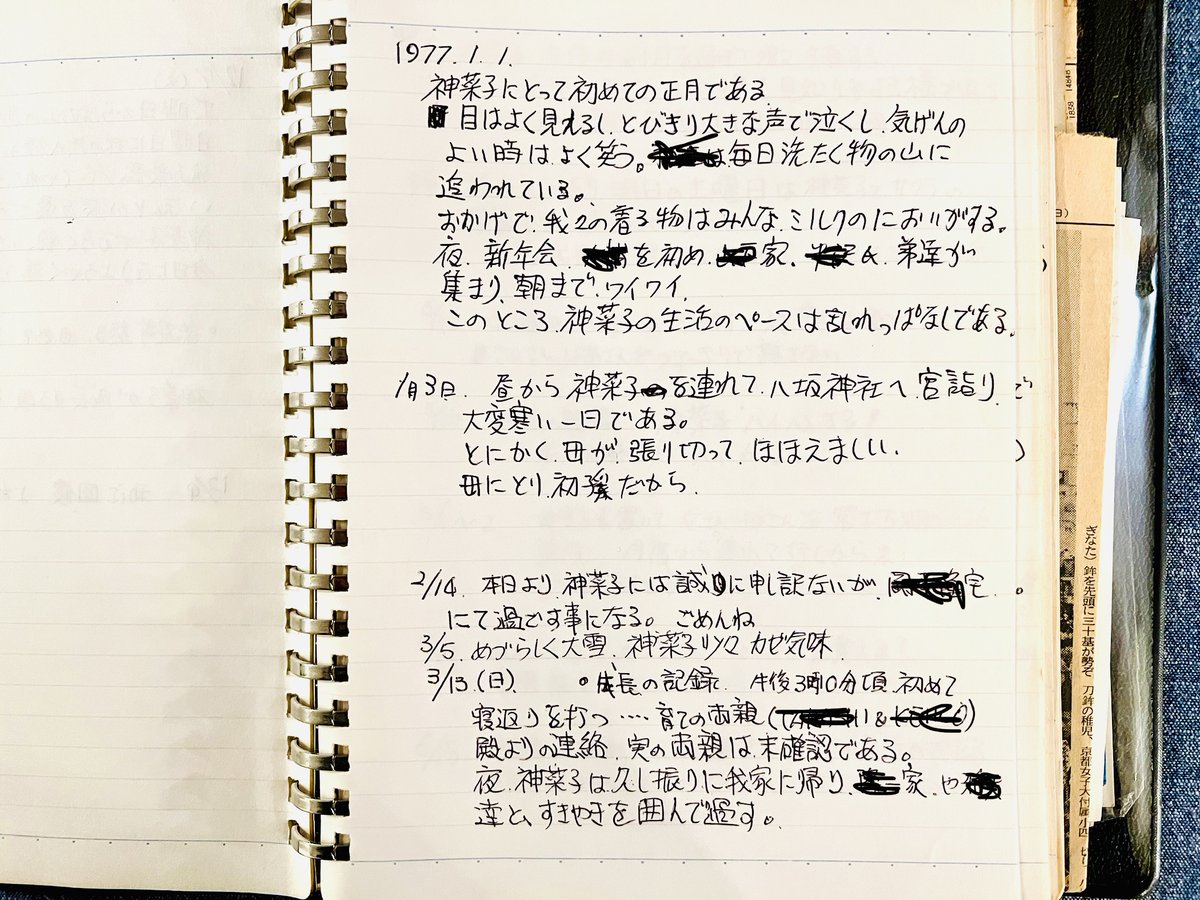 1977.1.1.
神菜子にとって初めての正月である
目はよく見れるし、とびきり大きな声で泣くし、気げんの
よい時は、よく笑う。は毎日洗たく物の山に
追われている。
おかげで、我々の着る物はみんな、ミルクのにおいがする。
夜、新年会、を初め、家、&、弟達が
集まり、朝まで、ワイワイ、
このところ、神菜子の生活のペースは乱れっぱなしである。
1月3日、昼から神菜子を連れて、八坂神社へ、宮詣り、
大変寒い一日である。
とにかく、母が、張り切って、ほほえましい、
母にとり、初孫だから、
2/14、本日より、神菜子には誠に申し訳ないが、宅
にて過ごす事になる。ごめんね
3/5、めづらしく大雪、神菜子 カゼ気味
3/13、(日)、 ○成長の記録、午後3時0分頃、初めて
寝返りを打つ……育ての両親(&)
殿よりの連絡、実の両親は、未確認である。
夜、神菜子は久し振りに我家に帰り、家、や
達と、すきやきを囲んで過す。
ぎなた）鉾を先頭に三十基が勢ぞ
刀鉾の稚児、京都女子大付属小四
1838